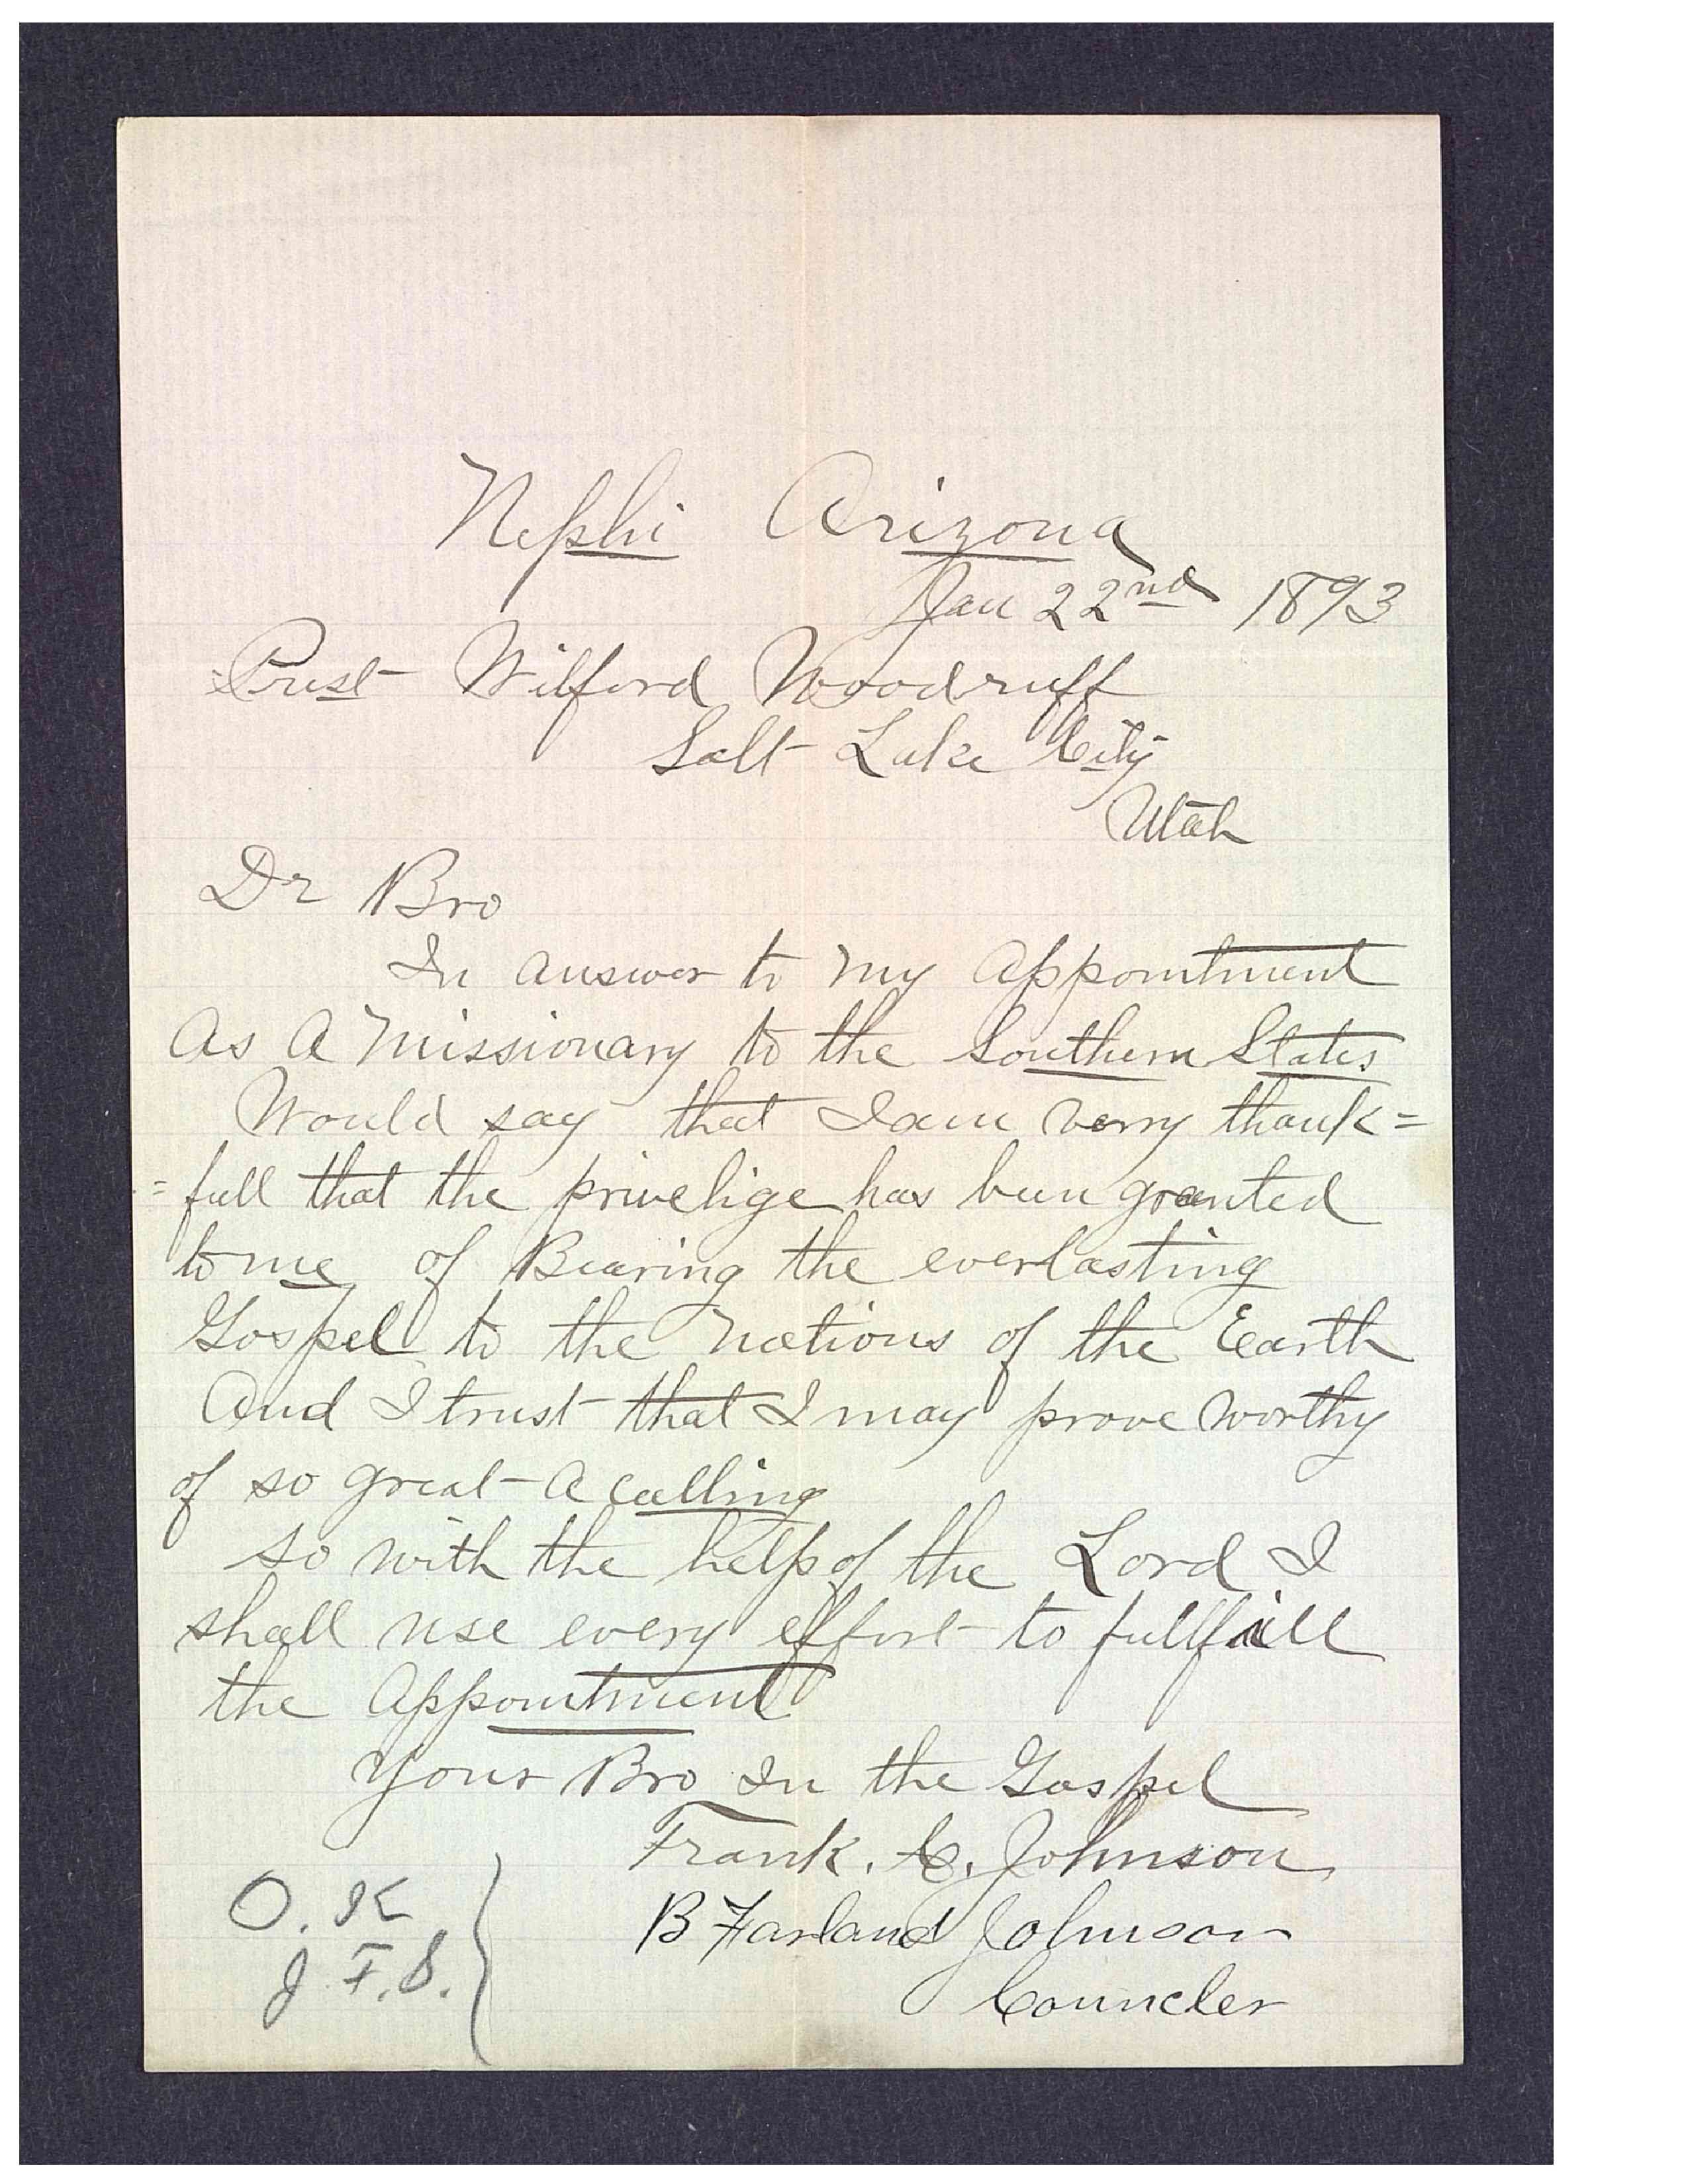 Nephi Arizona
Jan 22nd 1893
Prest Wilford Woodruff
Salt Lake City
Utah
Dr Bro
In answer to my appointment
As A Missionary to the Southern States
Would say that I am verry thank=
=full that the privelige has been granted
to me of Bearing the everlasting
Gospel to the Nations of the Earth
And I trust that I may prove worthy
of so great A calling
so with the help of the Lord I
shall use every effort to fullfill
the Appointment
Your Bro In the Gospel
Frank. Johnson
B Farland Johnson
Councler
O. K
J. F. S.